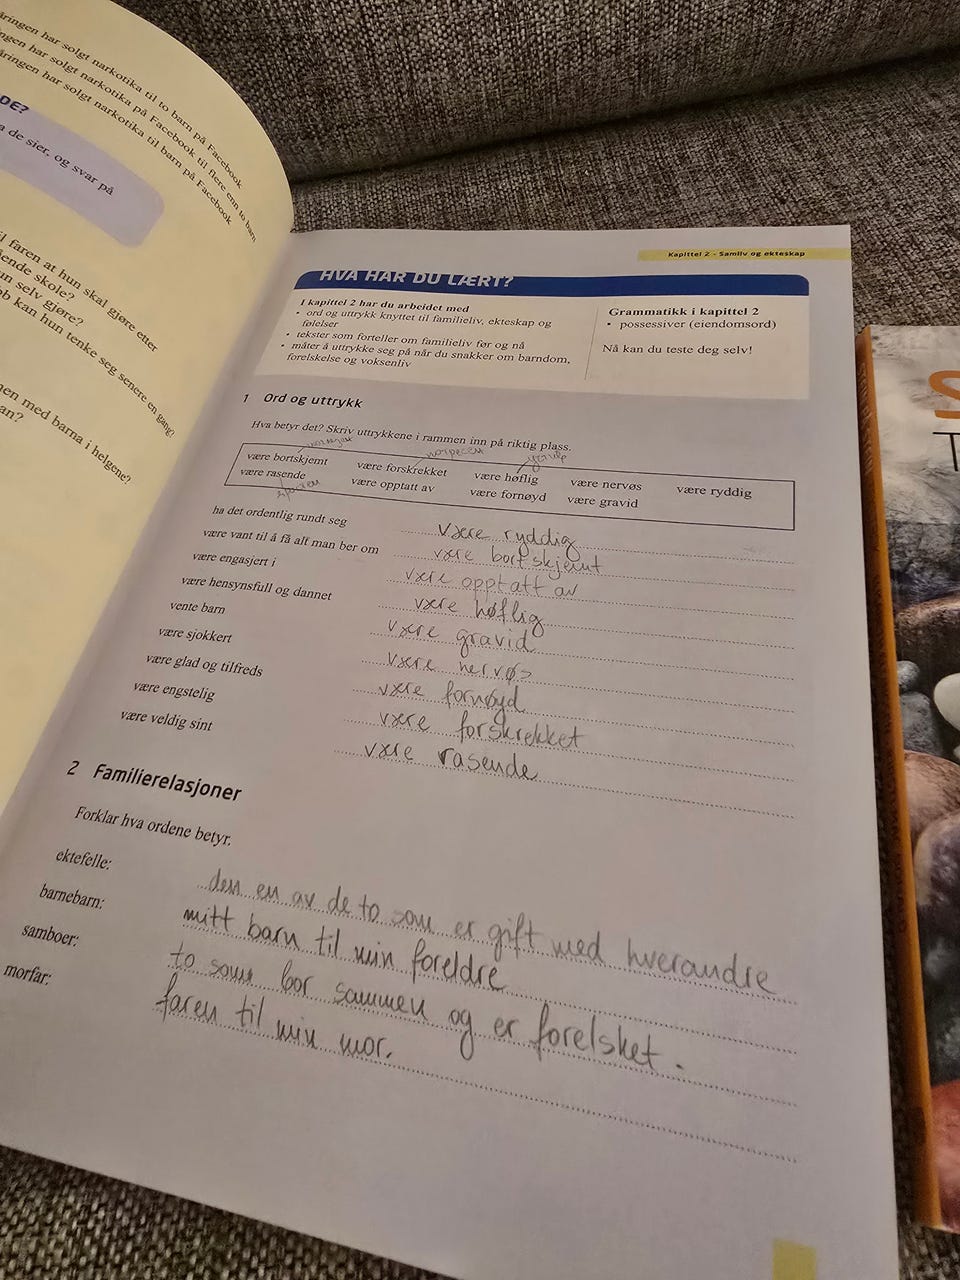 åringen har solgt narkotika til to barn på Facebook
ngen har solgt narkotika på Facebook til flere enn to barn
åringen har solgt narkotika til barn på Facebook
DE?
a de sier, og svar på
l faren at hun skal gjøre etter
ende skole?
un selv gjøre?
bb kan hun tenke seg senere en gang?
nen med barna i helgene?
an?
Kapittel 2 - Samliv og ekteskap
HVA HAR DU LÆRT?
I kapittel 2 har du arbeidet med
• ord og uttrykk knyttet til familieliv, ekteskap og
følelser
• tekster som forteller om familieliv før og nå
• måter å uttrykke seg på når du snakker om barndom,
forelskelse og voksenliv
Grammatikk i kapittel 2
• possessiver (eiendomsord)
Nå kan du teste deg selv!
1 Ord og uttrykk
Hva betyr det? Skriv uttrykkene i rammen inn på riktig plass.
være bortskjemt være forskrekket være høflig være nervøs være ryddig
være rasende være opptatt av være fornøyd være gravid
ha det ordentlig rundt seg være ryddig
være vant til å få alt man ber om være bortskjemt
være engasjert i være opptatt av
være hensynsfull og dannet være høflig
vente barn være gravid
være sjokkert være nervøs
være glad og tilfreds være fornøyd
være engstelig være forskrekket
være veldig sint være rasende
2 Familierelasjoner
Forklar hva ordene betyr.
ektefelle: den en av de to som er gift med hverandre
barnebarn: mitt barn til min foreldre
samboer: to som bor sammen og er forelsket.
morfar: faren til min mor.
S